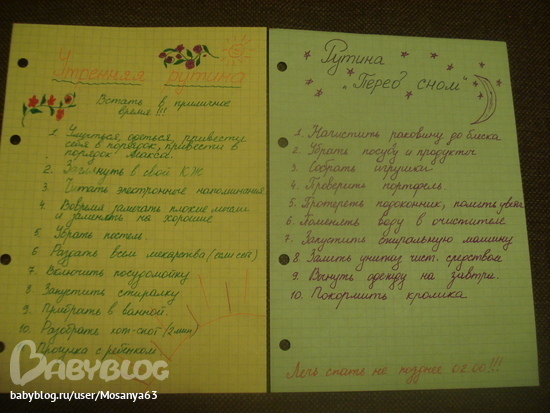 Утренняя рутина
Встать в приличное
время!!!
1. Умыться, одеться, привести
себя в порядок, привести в
порядок
2. Заглянуть в свой КЖ
3. Читать электронные напоминания
4. Вовремя замечать плохие мысли
и заменять на хорошие
5. Убрать постель.
6. Раздать всем лекарства (если ест)
7. Включить посудомойку
8. Запустить стиралку
9. Прибрать в ванной.
10. Разобрать хот-спот (2 мин)
Прогулка с ребенком
Рутина
"Перед сном"
1. Начистить раковину до блеска
2. Убрать посуду и продукты
3. Собрать игрушки
4. Проверить портфель.
5. Протереть подоконник, полить цветы
6. Поменять воду в очистителе
7. Запустить стиральную машину
8. Залить унитаз чист. средством
9. Вынуть одежду на завтра.
10. Покормить кролика
Лечь спать не позднее 02.00!!!
BABYBLOG
babyblog.ru/user/Mosanya63